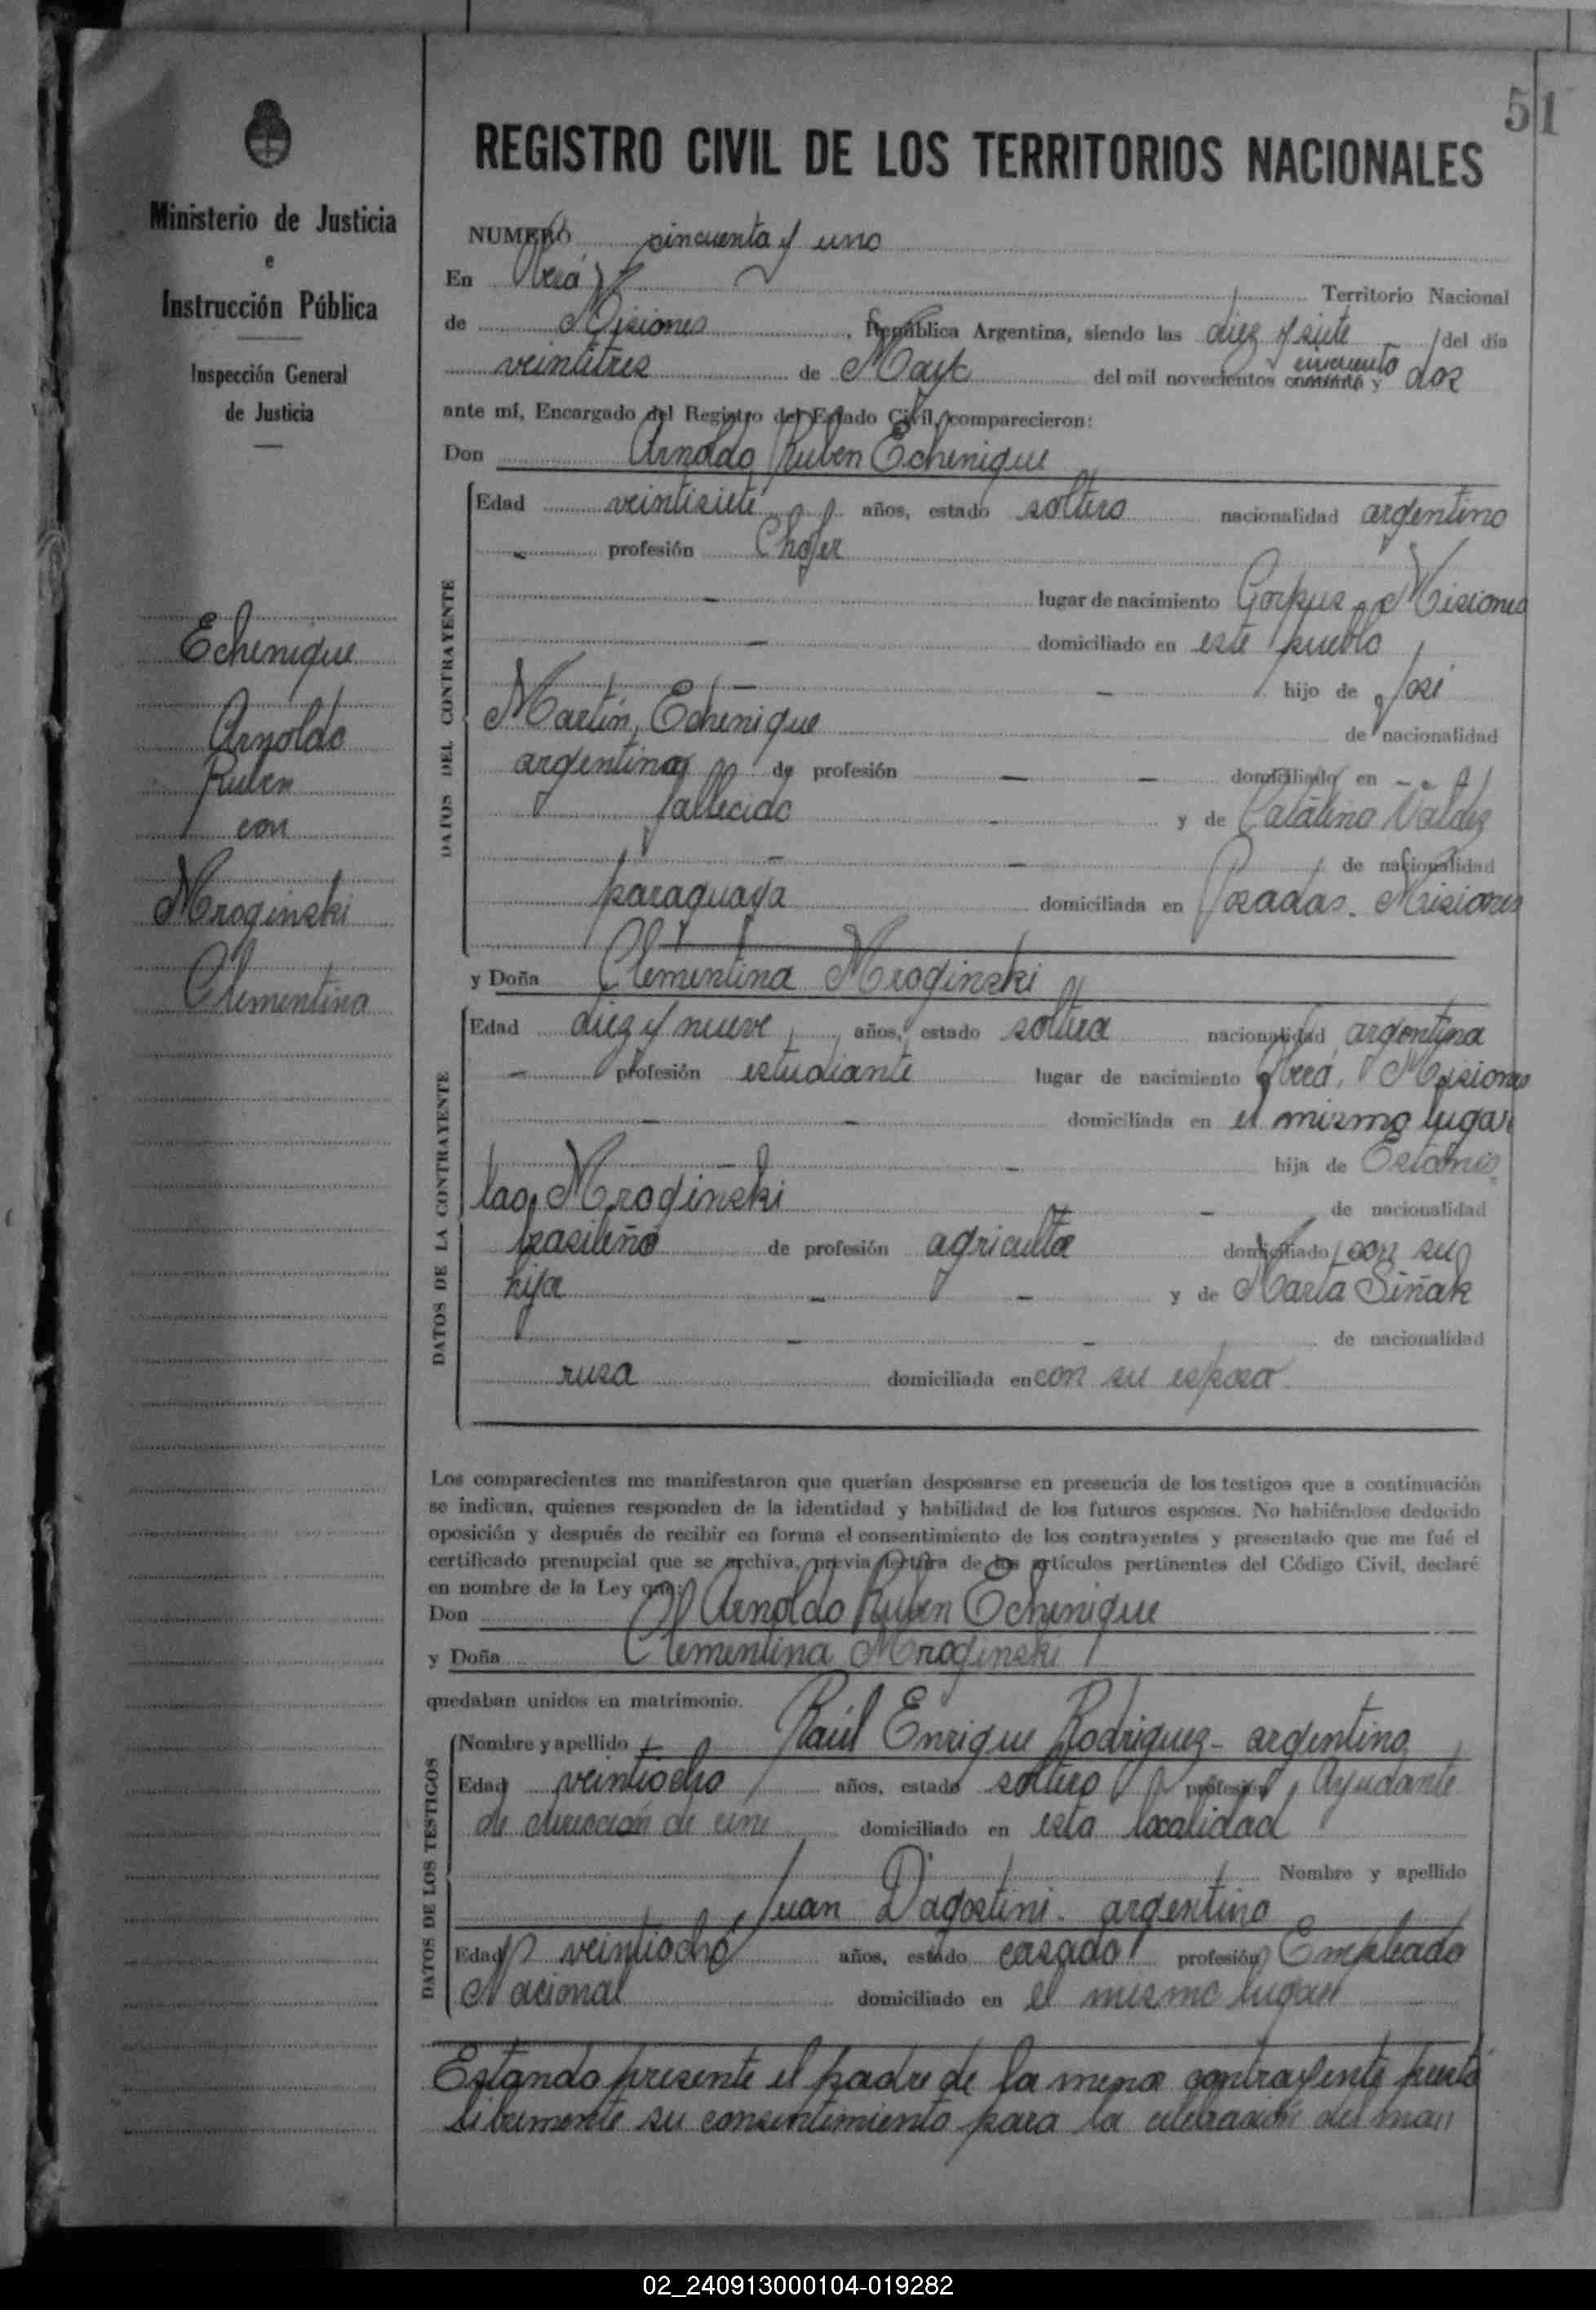 51
Ministerio de Justicia
e
Instrucción Pública
Inspección General
de Justicia
Echenique
Arnoldo
Ruben
con
Mroginski
Clementina
REGISTRO CIVIL DE LOS TERRITORIOS NACIONALES
NUMERO cincuenta y uno
En Oberá Territorio Nacional
de Misiones, República Argentina, siendo las diez y siete del día
veintitres de Mayo del mil novecientos cuarenta y cincuenta dos
ante mí, Encargado del Registro del Estado Civil, comparecieron:
Don Arnoldo Ruben Echenique
DATOS DEL CONTRAYENTE
Edad veintisiete años, estado soltero nacionalidad argentino
- profesión Chofer
- lugar de nacimiento Corpus - Misiones
- domiciliado en este pueblo
- - hijo de José
Martín Echenique de nacionalidad
argentina de profesión - - domiciliado en - -
fallecido - y de Catalina Valdez
- - de nacionalidad
paraguaya domiciliada en Posadas. Misiones
y Doña Clementina Mroginski
DATOS DE LA CONTRAYENTE
Edad diez y nueve años, estado soltera nacionalidad argentina
- profesión estudiante lugar de nacimiento Oberá, Misiones
- - domiciliada en el mismo lugar
- - hija de Estanis
lao Mroginski - de nacionalidad
brasileño de profesión agricultor domiciliado con su
hija - - y de María Siñak
- - de nacionalidad
rusa domiciliada en con su esposo
Los comparecientes me manifestaron que querían desposarse en presencia de los testigos que a continuación
se indican, quienes responden de la identidad y habilidad de los futuros esposos. No habiéndose deducido
oposición y después de recibir en forma el consentimiento de los contrayentes y presentado que me fué el
certificado prenupcial que se archiva, previa lectura de los artículos pertinentes del Código Civil, declaré
en nombre de la Ley que:
Don Arnoldo Ruben Echenique
y Doña Clementina Mroginski
quedaban unidos en matrimonio.
DATOS DE LOS TESTIGOS
Nombre y apellido Raúl Enrique Rodriguez - argentino
Edad veintiocho años, estado soltero profesión Ayudante
de dirección de cine domiciliado en esta localidad
Nombre y apellido
Juan D'agostini - argentino
Edad veintiocho años, estado casado profesión Empleado
Nacional domiciliado en el mismo lugar
Estando presente el padre de la menor contrayente presta
libremente su consentimiento para la celebración del mari
02_240913000104-019282